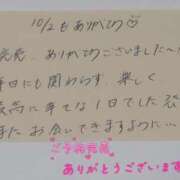 10/2も ありがとう♡
完売、ありがとうございました〜
平日にも関わらず、楽しく
最高に幸せな1日でした
またお会いできますように…
ご予約完売
ありがとうございます